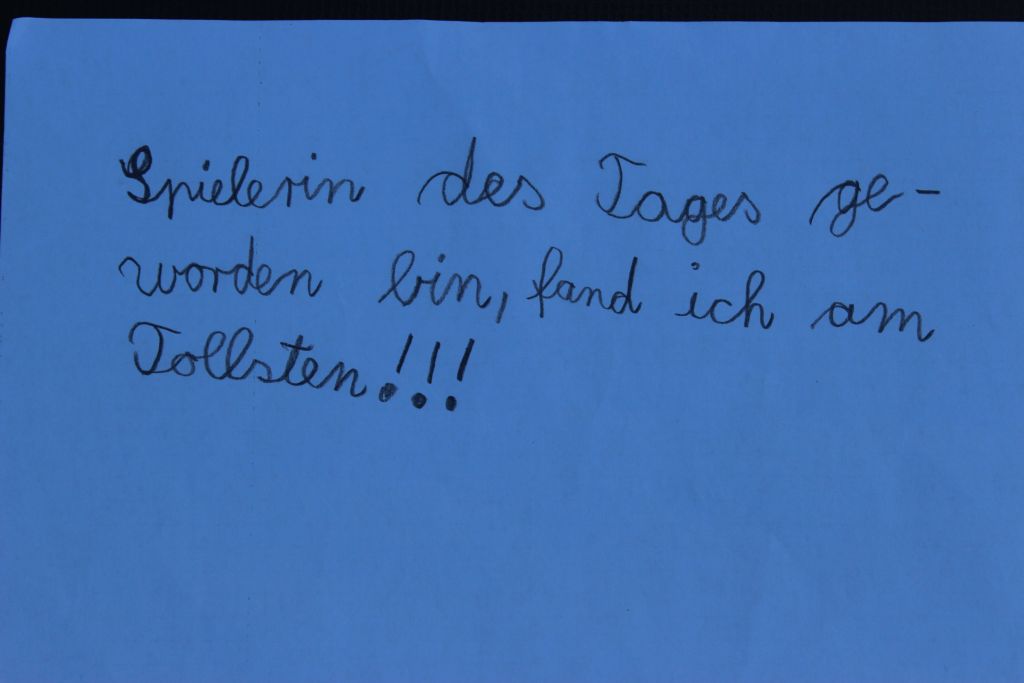 Spielerin des Tages ge-
worden bin, fand ich am
Tollsten!!!